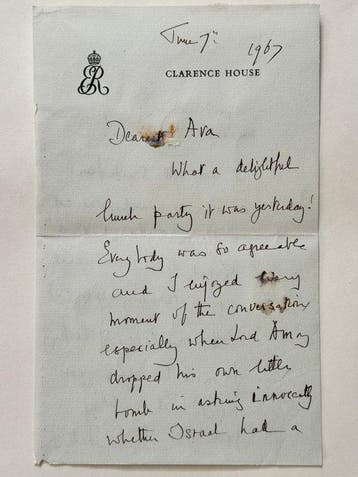 June 7th 1967
ER
CLARENCE HOUSE
Dearest Ava
What a delightful
lunch party it was yesterday!
Everybody was so agreeable
and I enjoyed every
moment of the conversation
especially when Lord Amory
dropped his own little
bomb in asking innocently
whether Israel had a